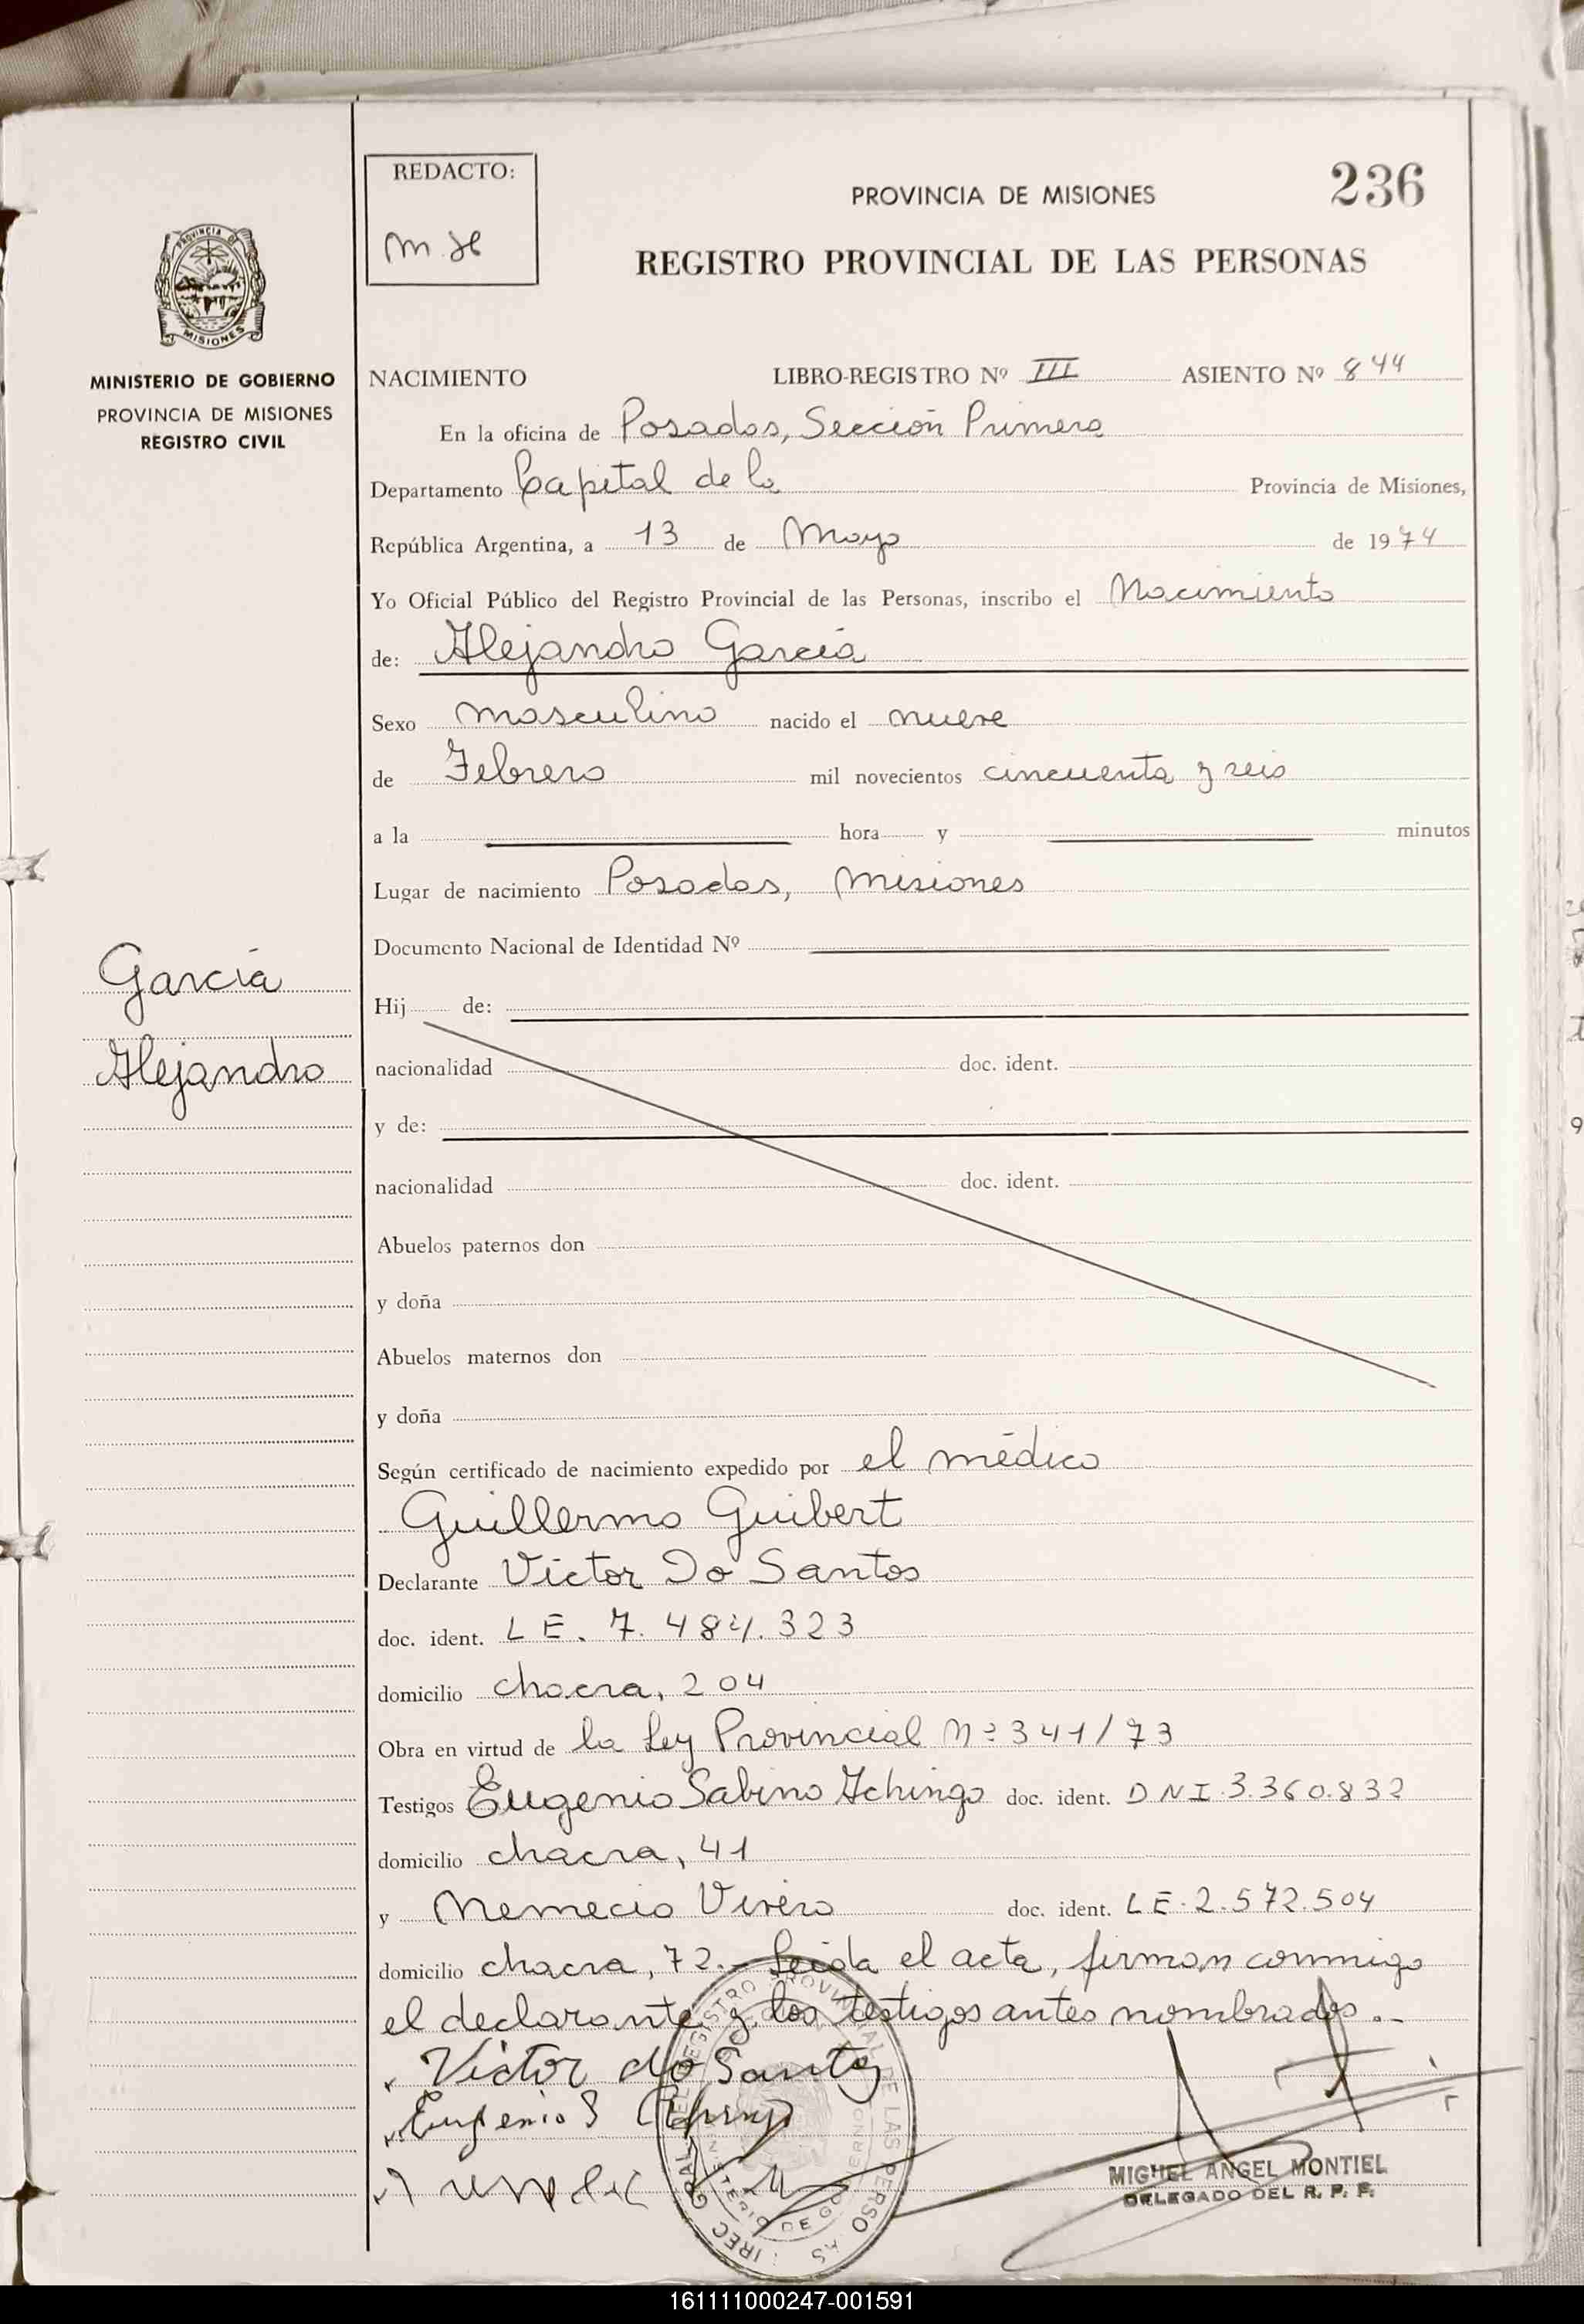 REDACTO:
PROVINCIA DE MISIONES
236
REGISTRO PROVINCIAL DE LAS PERSONAS
MISIONES
MINISTERIO DE GOBIERNO
PROVINCIA DE MISIONES
REGISTRO CIVIL
NACIMIENTO LIBRO-REGISTRO Nº III ASIENTO Nº 844
En la oficina de Posadas, Sección Primera
Departamento Capital de la Provincia de Misiones,
República Argentina, a 13 de Mayo de 1974
Yo Oficial Público del Registro Provincial de las Personas, inscribo el Nacimiento
de: Alejandro García
Sexo masculino nacido el nueve
de Febrero mil novecientos cincuenta y seis
a la hora y minutos
Lugar de nacimiento Posadas, Misiones
Documento Nacional de Identidad Nº
García
Alejandro
Hij de:
nacionalidad doc. ident.
y de:
nacionalidad doc. ident.
Abuelos paternos don
y doña
Abuelos maternos don
y doña
Según certificado de nacimiento expedido por el médico
Guillermo Guibert
Declarante Victor Do Santos
doc. ident. L E. 7. 484. 323
domicilio chacra, 204
Obra en virtud de la Ley Provincial Nº 341/73
Testigos Eugenio Sabino doc. ident. D N I. 3.360.832
domicilio chacra, 41
y Nemecio doc. ident. L E. 2.572.504
domicilio chacra, 72.- Leida el acta, firman conmigo
el declarante y los testigos antes nombrados.-
Victor do Santos
Eugenio S
MIGUEL ANGEL MONTIEL
DELEGADO DEL R. P. P.
161111000247-001591